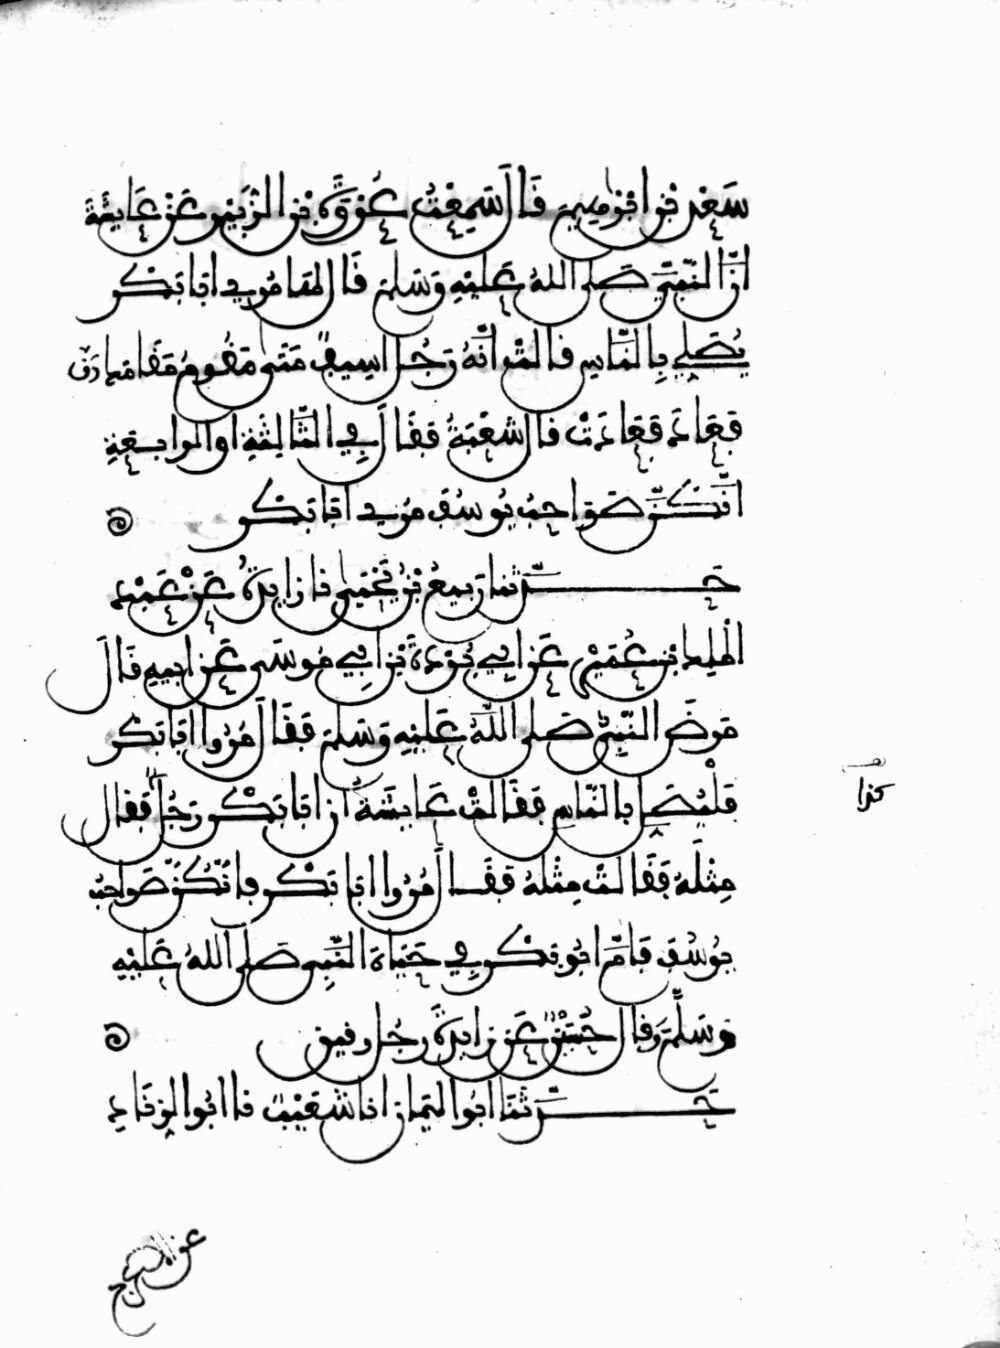 سَعْدِ بْنِ ابْرٰهِيمَ قَالَ سَمِعْتُ عُرْوَةَ بْنَ الزُّبَيْرِ عَنْ عَايِشَةَ
انَّ النَّبِيَّ صَلى اللهُ عَلَيْهِ وَسَلمَ قَالَ لهَا مُرِي ابَا بَكْرٍ
يُصَلِّي بِالنَّاسِ قالتْ انَّهُ رَجُلٌ اسِيفٌ مَتَى يَقُومُ مَقَامَكَ رَقَّ
فَعَادَ فَعَادَتْ قال شُعْبَةُ فَقَالَ فِي الثَّالِثَةِ او الرابِعَةِ
انَّكُنَّ صَوَاحِبُ يُوسُفَ مُرِي ابَا بَكْرٍ
حَدَّثنا رَبِيعُ بْنُ يَحْيَى نا زايِدَةُ عَنْ عَبْدِ
الْمَلِكِ بْنِ عُمَيْرٍ عَنِ ابِي بُرْدَةَ بْنِ ابِي مُوسَى عَنِ ابِيهِ قَالَ
مَرِضَ النَّبِيُّ صَلى اللَّهُ عَلَيْهِ وَسَلمَ فَقَالَ مُرُوا ابَا بَكْرٍ
فَلْيُصَلِّ بِالنَّاسِ فَقَالَتْ عَايِشَةُ ان ابَا بَكْرٍ رَجُلٌ فَقَالَ
مِثْلَهُ فَقَالَتْ مِثْلَهُ فَقَالَ مُرُوا ابَا بَكْرٍ فانَّكُنَّ صَوَاحِبُ
يُوسُفَ فَامَّ ابُو بَكْرٍ فِي حَيَاةِ النَّبِيِّ صَلى اللهُ عَلَيْهِ
وَسَلَّمَ وَقَالَ حُسَيْنٌ عَنْ زايِدَةَ رَجُلٌ رقيقٌ
حَدَّثنَا ابُو اليَمانِ انا شُعَيْبٌ نا ابُو الزِّنَادِ
كذا
عن الاعرج